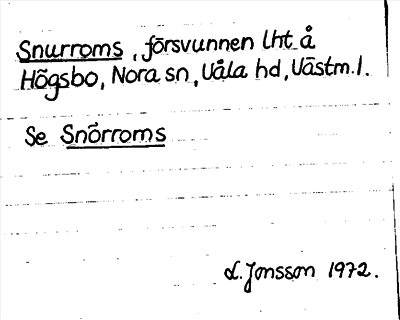 Snurroms, försvunnen lht å
Högsbo, Nora sn, Våla hd, Västm.l.
Se Snörroms
L. Jonsson 1972.